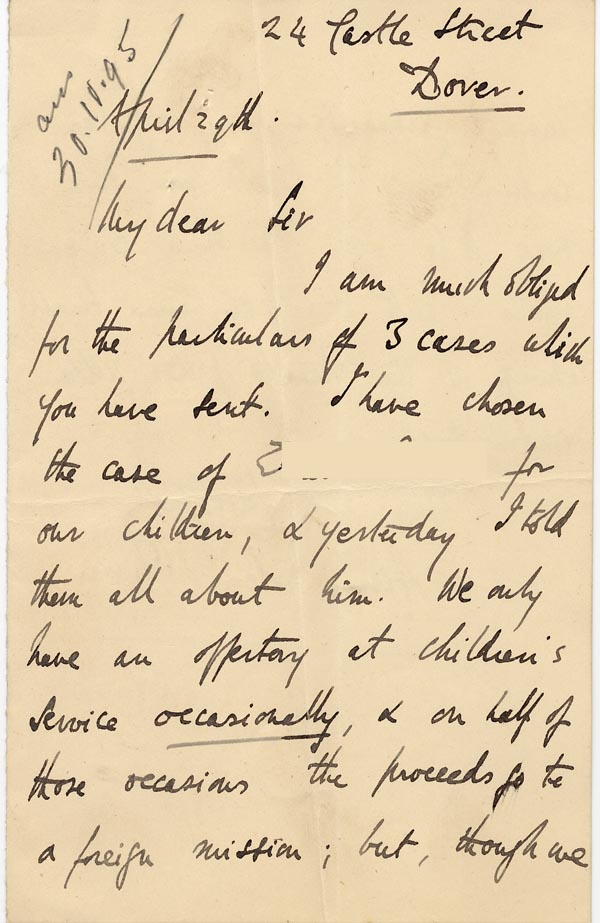 24 Castle Street
Dover.
ans
30.IV.95
April 29th.
My dear Sir
I am much obliged
for the particulars of 3 cases which
you have sent. I have chosen
the case of E for
our children, & yesterday I told
them all about him. We only
have an offertory at children's
service occasionally, & on half of
those occasions the proceeds go to
a foreign mission; but, though we